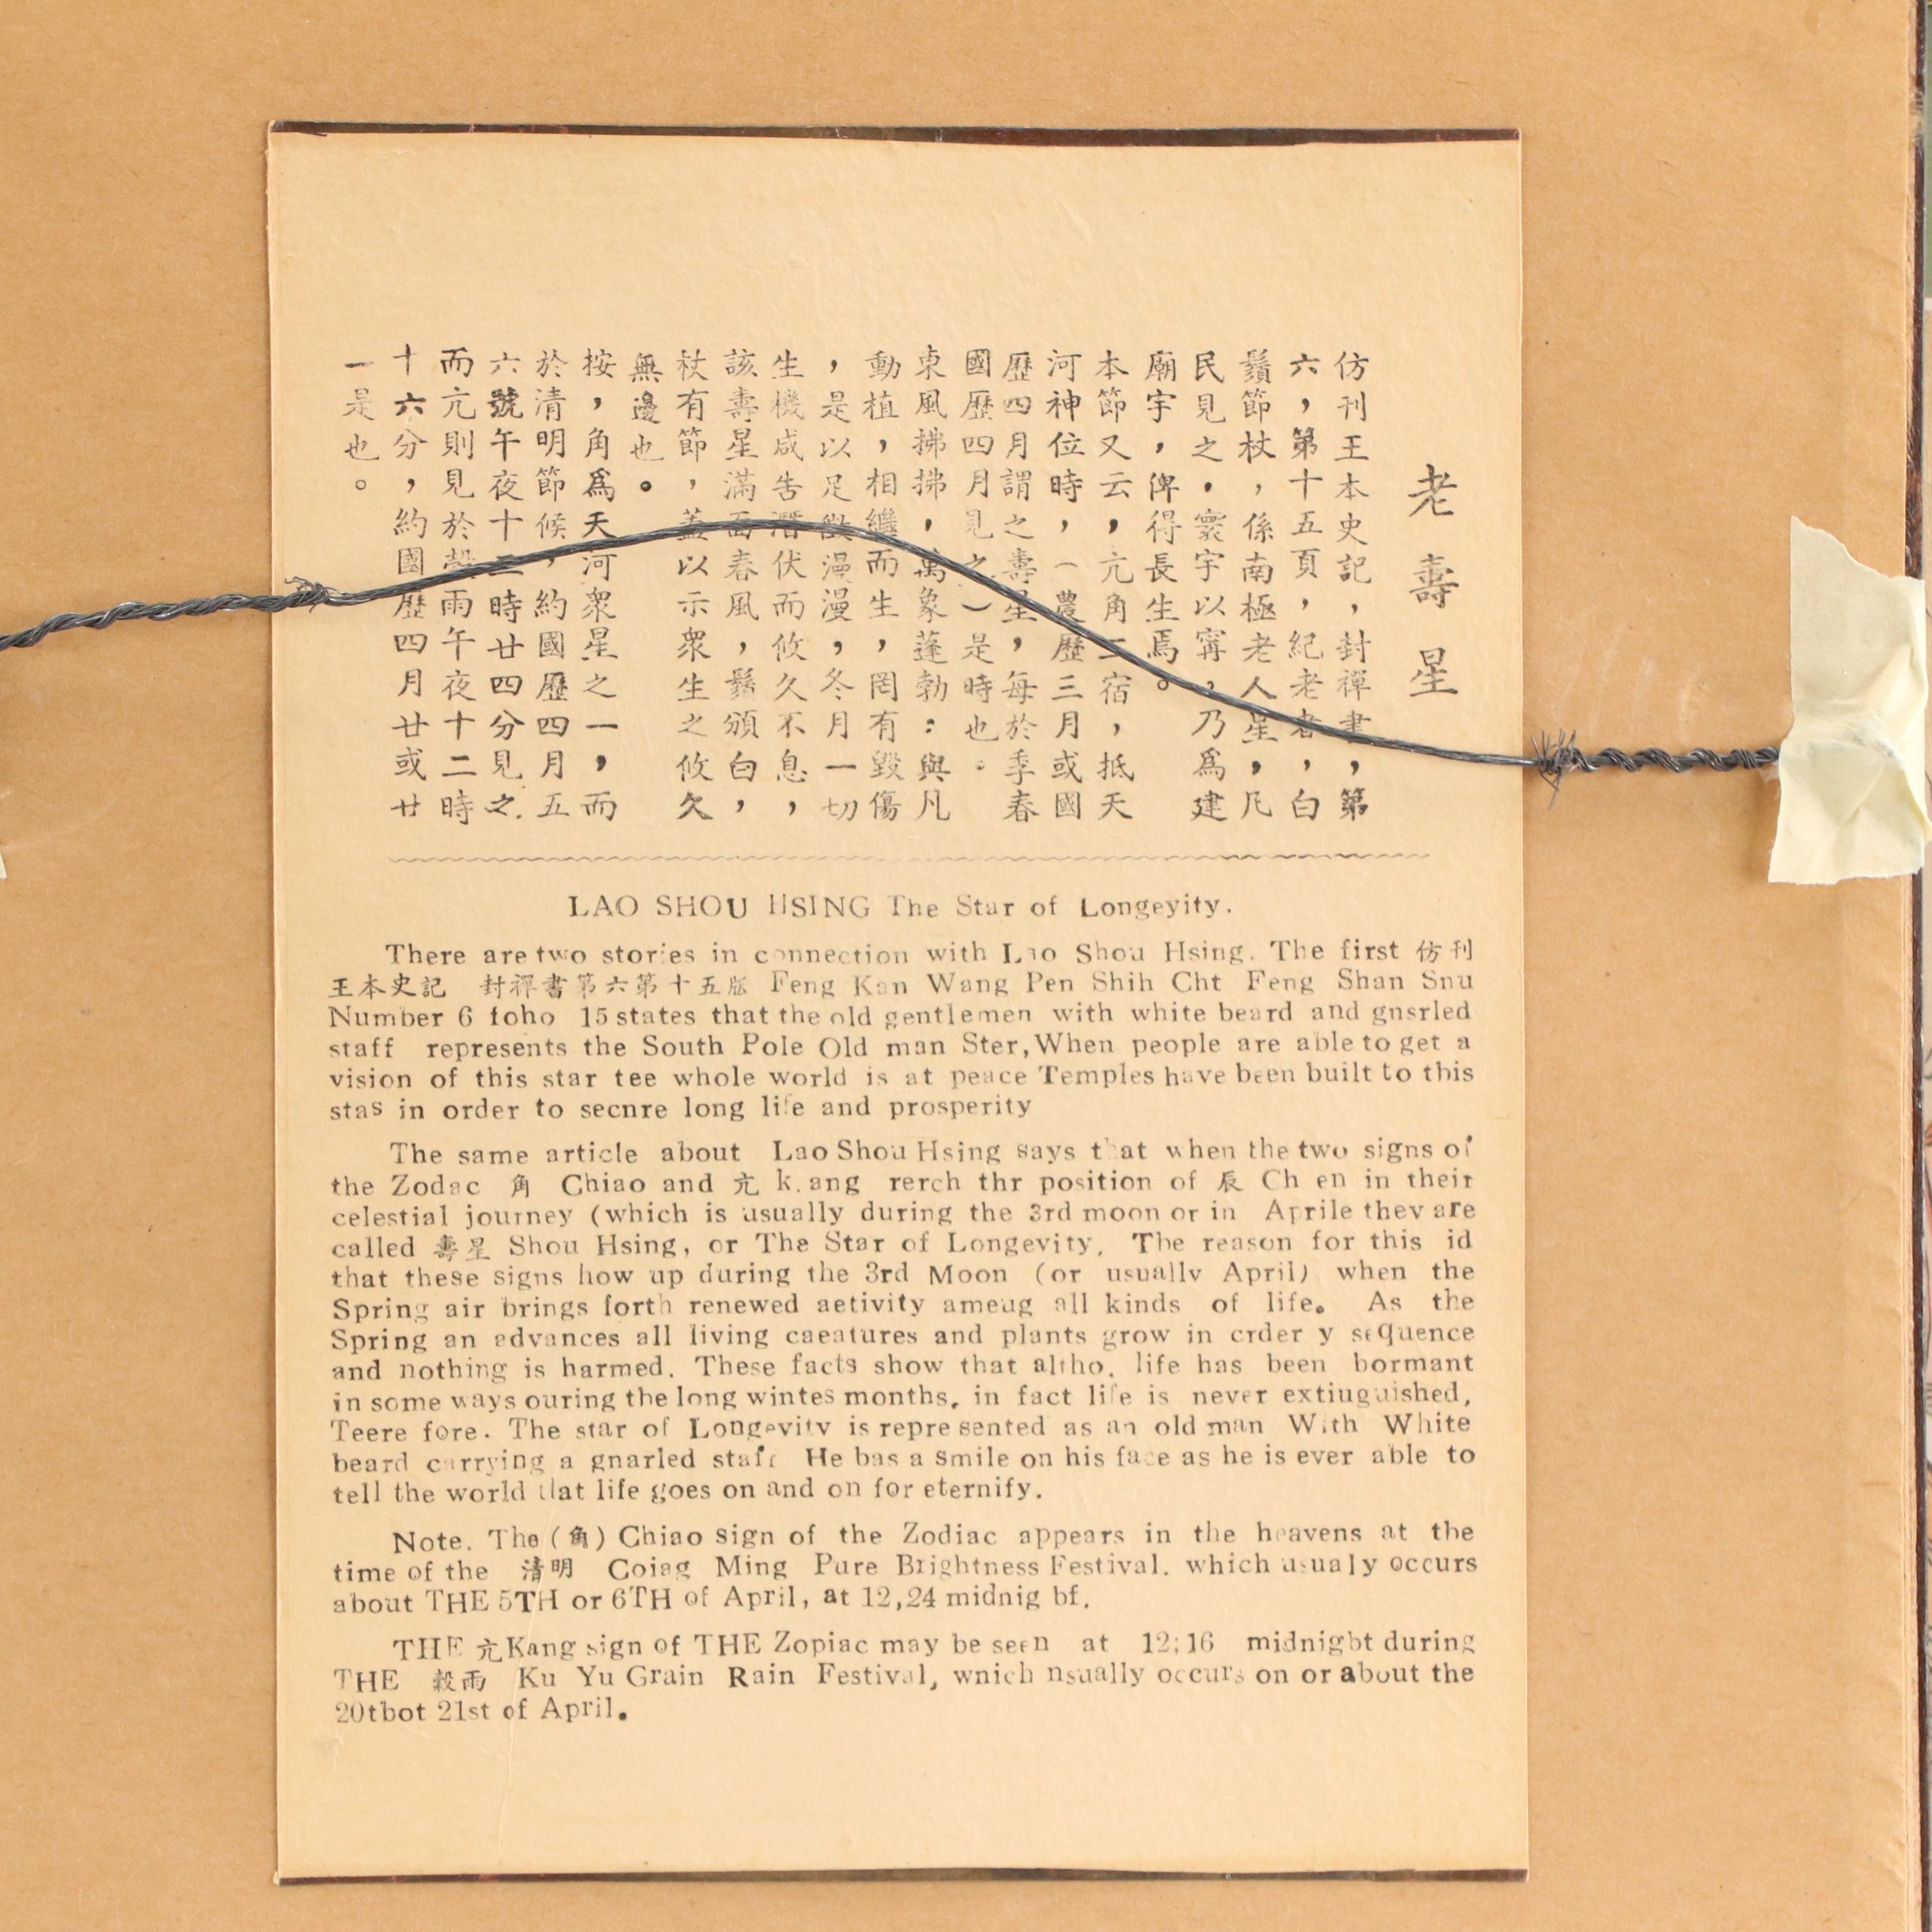 老壽星
仿刊王本史記，封禪書，第
六，第十五頁，紀老者，白
鬚節杖，係南極老人星，凡
民見之．寰宇以寗，乃為建
廟宇，俾得長生焉。
本節又云，亢角二宿，抵天
河神位時，（農歷三月或國
歷四月謂之壽星，每於季春
國歷四月見之）是時也．
東風拂拂，萬象蓬勃：與凡
動植，相繼而生，罔有毀傷
，是以足徵漫漫，冬月一切
生機咸告潛伏而攸久不息，
該壽星滿面春風，鬚頒白，
杖有節，蓋以示衆生之攸久
無邊也。
按，角爲天河衆星之一，而
於清明節候，約國歷四月五
六號午夜十二時廿四分見之.
而亢則見於穀雨午夜十二時
十六分，約國歷四月廿或廿
一是也。
LAO SHOU HSING The Star of Longeyity.
There are two stories in connection with Lao Shou Hsing. The first 仿刊
王本史記 封禪書第六第十五版 Feng Kan Wang Pen Shih Cht Feng Shan Snu
Number 6 foho 15 states that the old gentlemen with white beard and gnsrled
staff represents the South Pole Old man Ster, When people are able to get a
vision of this star tee whole world is at peace Temples have been built to this
stas in order to secnre long life and prosperity
The same article about Lao Shou Hsing says that when the two signs of
the Zodac 角 Chiao and 亢 k.ang rerch thr position of 辰 Ch en in their
celestial journey (which is usually during the 3rd moon or in Aprile thev are
called 壽星 Shou Hsing, or The Star of Longevity, The reason for this id
that these signs how up during the 3rd Moon (or usuallv April) when the
Spring air brings forth renewed aetivity ameug all kinds of life. As the
Spring an advances all living caeatures and plants grow in crder y sequence
and nothing is harmed. These facts show that altho. life has been bormant
in some ways ouring the long wintes months, in fact life is never extiuguished,
Teere fore. The star of Longevitv is repre sented as an old man With White
beard carrying a gnarled staff He bas a smile on his face as he is ever able to
tell the world tlat life goes on and on for eternify.
Note. The (角) Chiao sign of the Zodiac appears in the heavens at the
time of the 清明 Coiag Ming Pure Brightness Festival. which usualy occurs
about THE 5TH or 6TH of April, at 12,24 midnig bf.
THE 亢 Kang sign of THE Zopiac may be seen at 12;16 midnigbt during
THE 穀雨 Ku Yu Grain Rain Festival, wnich nsually occurs on or about the
20tbot 21st of April.